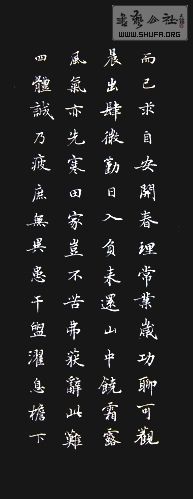 書藝公社
WWW.SHUFA.ORG
而已求自安開春理常業歲功聊可觀
晨出肆微勤日入負耒還山中饒霜露
風氣亦先寒田家豈不苦弗獲辭此難
四體誠乃疲庶無異患干盥濯息檐下